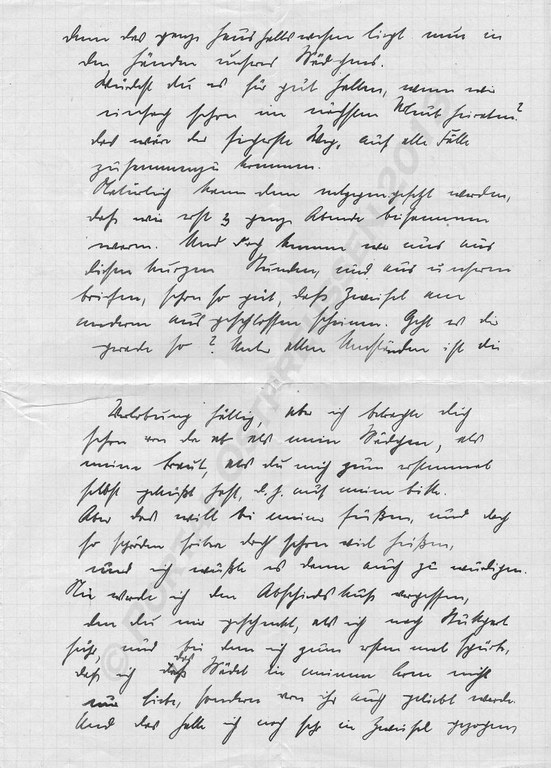 denn das ganze Haushaltswesen liegt nun in
den Händen unseres Mädchens.
Würdest du es für gut halten, wenn wir
einfach schon im nächsten Urlaub heiraten?
das wäre der sicherste Weg, auf alle Fälle
zusammenzukommen.
Natürlich kann dem entgegengesetzt werden,
daß wir erst 3 ganze Abende beisammen
waren. Und doch kennen wir uns aus
diesen kurzen Stunden, und aus unseren
Briefen, schon so gut, daß Zweifel am
anderen ausgeschlossen scheinen. Geht es dir
gerade so? Unter allen Umständen ist die
Verlobung fällig, aber ich betrachte dich
schon von da ab als mein Mädchen, als
meine Braut, als du mich zum erstenmal
selbst geküßt hast, d.h. auf meine Bitte.
Aber das will bei meiner süßen, und doch
so spröden doch schon viel heißen,
und ich wußte es dann auch zu würdigen.
Nie werde ich den Abschiedskuß vergessen,
den du mir geschenkt, als ich nach Stuttgart
fuhr, und bei dem ich zum ersten mal spürte,
daß ich das Mädel in meinem Arm nicht
nur liebe, sondern von ihr auch geliebt werde.
Und das hatte ich noch sehr in Zweifel gezogen,
© 2012